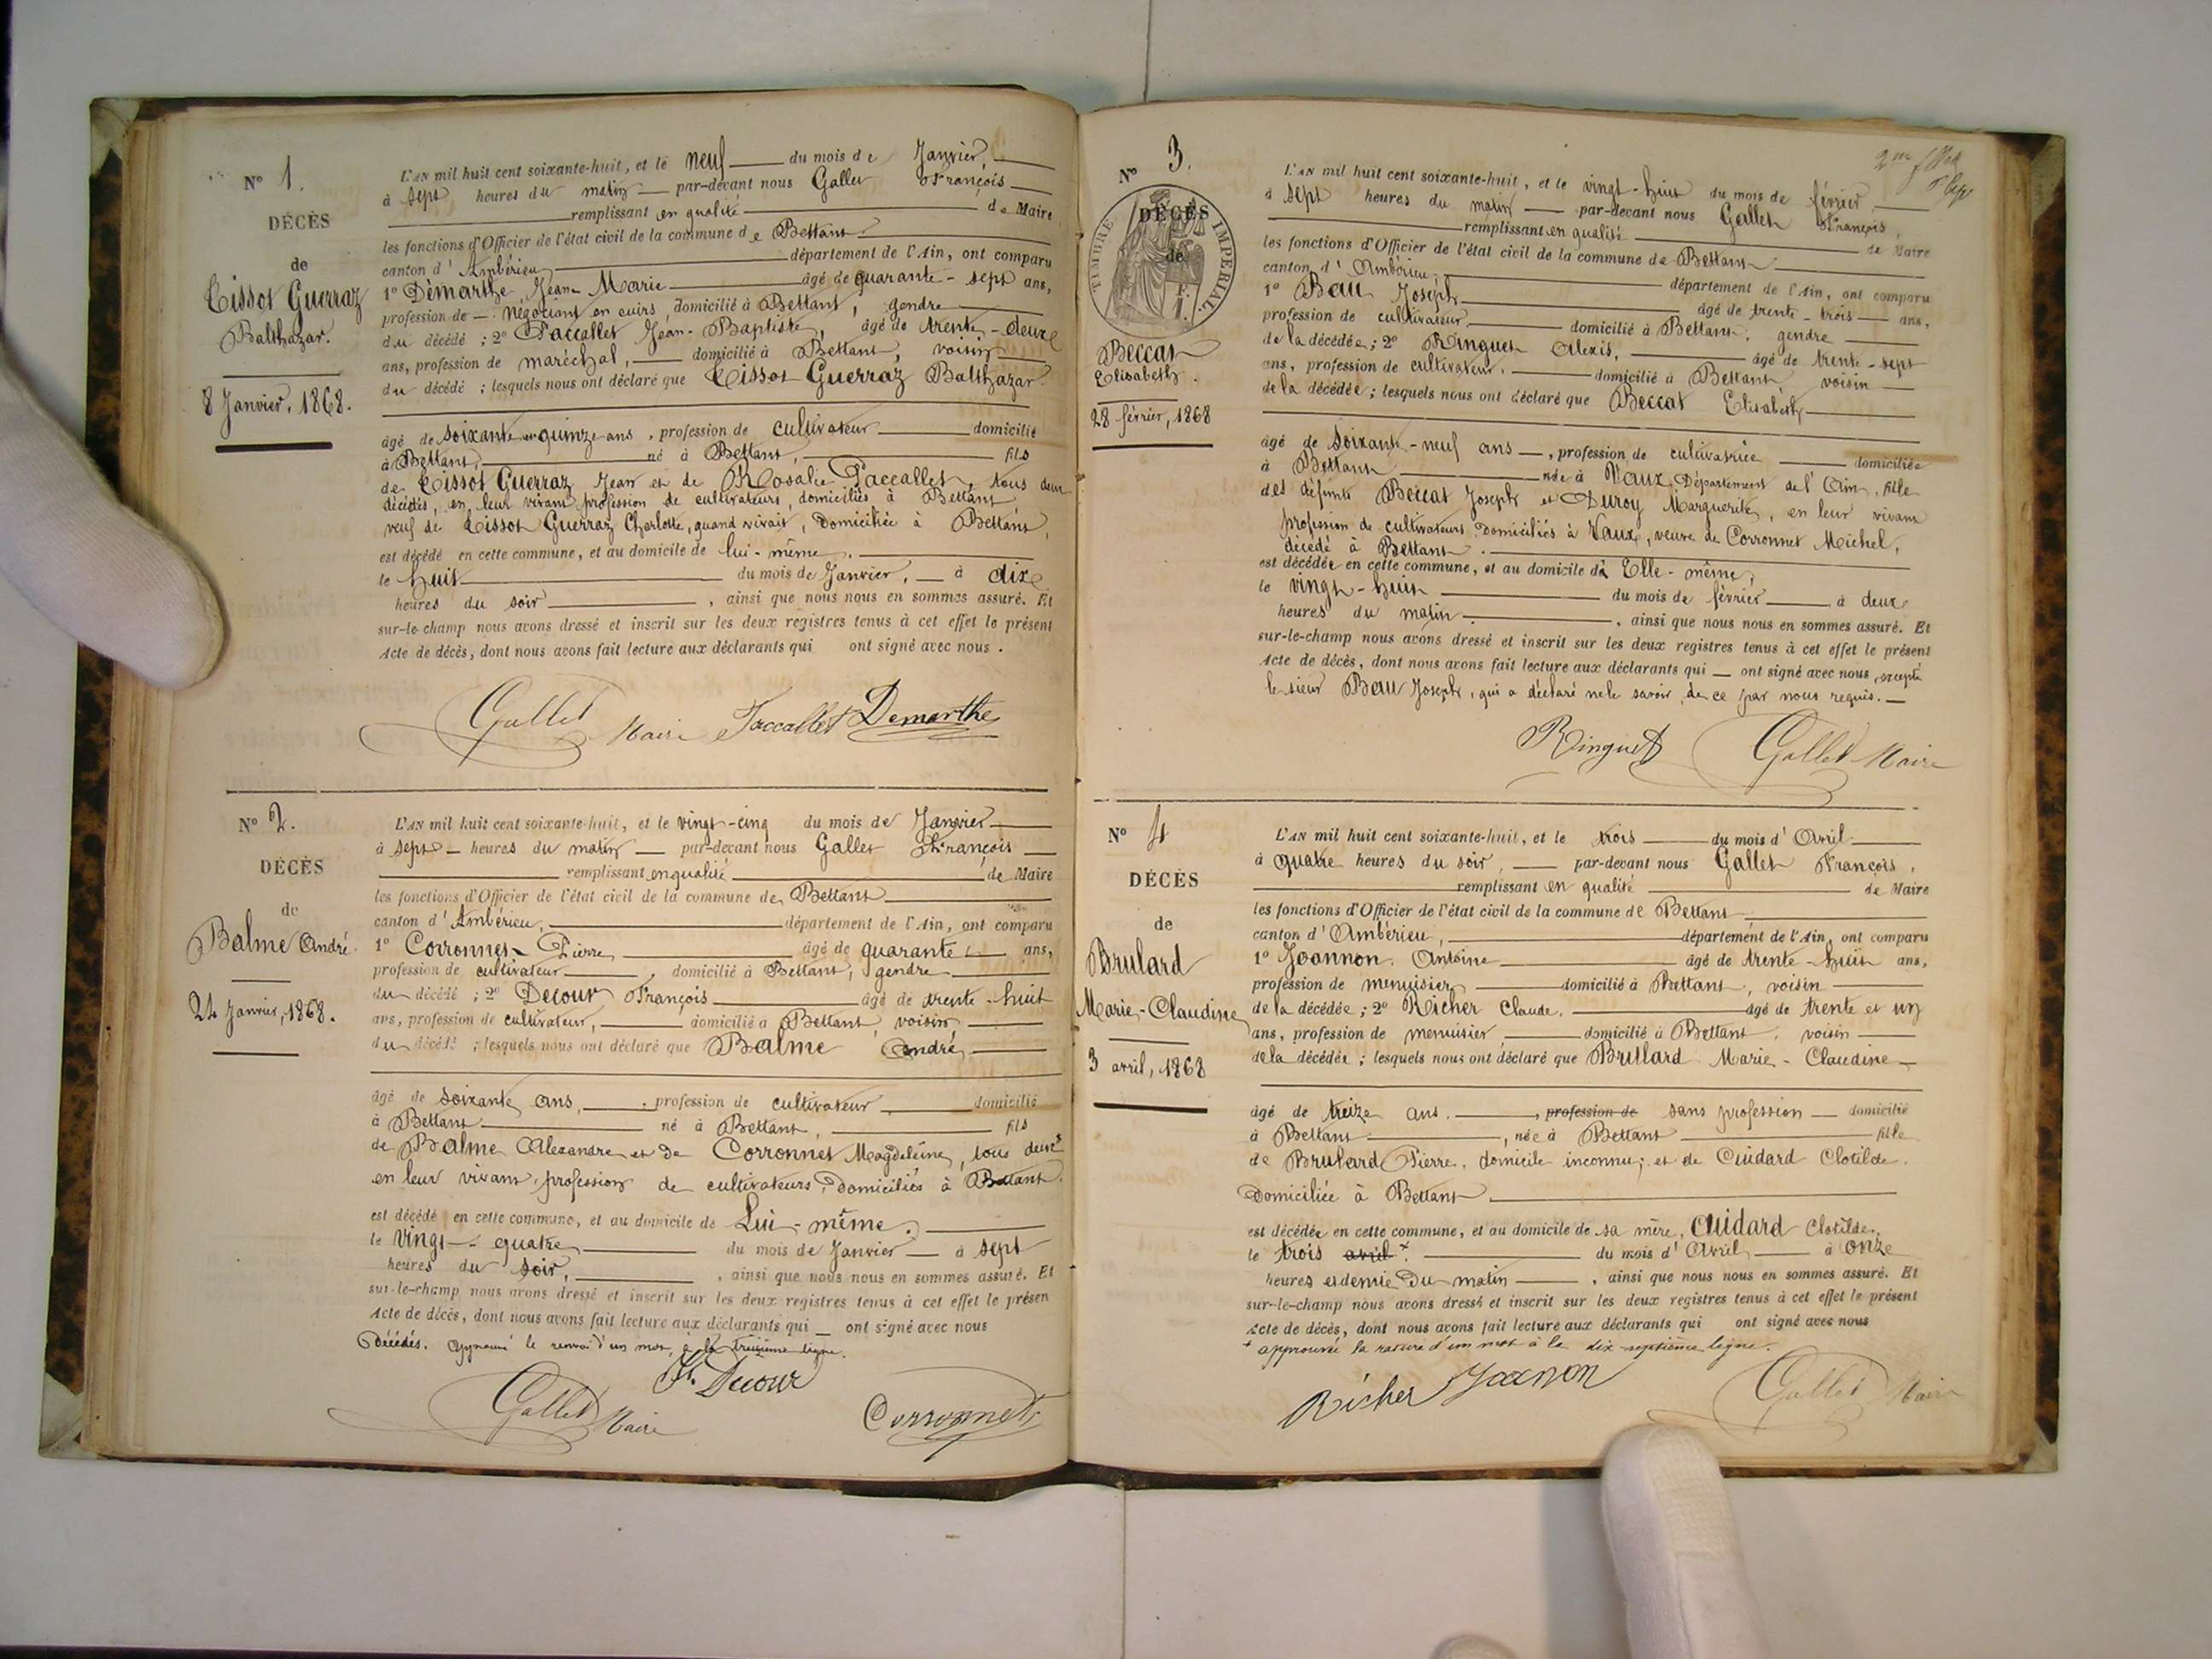 N° 1.
DÉCÈS
de
Tissot Guerraz
Balthazar.
8 Janvier, 1868.
L'AN mil huit cent soixante-huit, et le neuf du mois de Janvier,
à sept heures du matin par-devant nous Gallet François
remplissant en qualité de Maire
les fonctions d'Officier de l'état civil de la commune de Bettant
canton d'Ambérieu département de l'Ain, ont comparu
1° Démarthe, Jean-Marie âgé de quarante-sept ans,
profession de négociant en cuirs, domicilié à Bettant, gendre
du décédé ; 2° Paccallet Jean-Baptiste, âgé de trente-deux
ans, profession de maréchal, domicilié à Bettant, voisin
du décédé ; lesquels nous ont déclaré que Tissot Guerraz Balthazar.
âgé de soixante-quinze ans, profession de cultivateur domicilié
à Bettant, né à Bettant, fils
de Tissot Guerraz Jean et de Rosalie Paccallet, tous deux
décédés, en leur vivant profession de cultivateurs, domiciliés à Bettant
veuf de Tissot Guerraz Charlotte, quand vivait, domiciliée à Bettant,
est décédé en cette commune, et au domicile de lui-même.
le huit du mois de Janvier, à dix
heures du soir, ainsi que nous nous en sommes assuré. Et
sur-le-champ nous avons dressé et inscrit sur les deux registres tenus à cet effet le présent
Acte de décès, dont nous avons fait lecture aux déclarants qui ont signé avec nous.
Gallet Maire Paccallet Demarthe
N° 2.
DÉCÈS
de
Balme André.
24 Janvier, 1868.
L'AN mil huit cent soixante-huit, et le vingt-cinq du mois de Janvier
à sept heures du matin par-devant nous Gallet François
remplissant en qualité de Maire
les fonctions d'Officier de l'état civil de la commune de Bettant
canton d'Ambérieu, département de l'Ain, ont comparu
1° Corronnet Pierre âgé de quarante ans,
profession de cultivateur, domicilié à Bettant, gendre
du décédé ; 2° Decour François âgé de trente-huit
ans, profession de cultivateur, domicilié à Bettant, voisin
du décédé ; lesquels nous ont déclaré que Balme André
âgé de soixante ans, profession de cultivateur domicilié
à Bettant né à Bettant, fils
de Balme Alexandre et de Corronnet Magdeleine, tous deux*
en leur vivant, profession de cultivateurs, domiciliés à Bettant.
est décédé en cette commune, et au domicile de Lui-même.
le vingt-quatre du mois de Janvier à sept
heures du soir, ainsi que nous nous en sommes assuré. Et
sur-le-champ nous avons dressé et inscrit sur les deux registres tenus à cet effet le présen
Acte de décès, dont nous avons fait lecture aux déclarants qui ont signé avec nous
Décédés. Approuvé le renvoi d'un mot, à la treizième ligne.
Decour
Gallet Maire Corronnet
N° 3.
TIMBRE IMPERIAL
DÉCÈS
de
Beccat
Elisabeth.
28 février, 1868
L'AN mil huit cent soixante-huit, et le vingt-huit du mois de février,
à sept heures du matin par-devant nous Gallet François,
remplissant en qualité de Maire
les fonctions d'Officier de l'état civil de la commune de Bettant
canton d'Ambérieu, département de l'Ain, ont comparu
1° Bau Joseph âgé de trente-trois ans,
profession de cultivateur domicilié à Bettant, gendre
de la décédée ; 2° Ringuet Alexis, âgé de trente-sept
ans, profession de cultivateur, domicilié à Bettant voisin
de la décédée ; lesquels nous ont déclaré que Beccat Elisabeth
âgé de soixante-neuf ans, profession de cultivatrice domiciliée
à Bettant née à Vaux, Département de l'Ain, fille
des défunts Beccat Joseph et Duroy Marguerite, en leur vivant
profession de cultivateurs domiciliés à Vaux, veuve de Corronnet Michel,
décédé à Bettant.
est décédée en cette commune, et au domicile d'Elle-même,
le vingt-huit du mois de février à deux
heures du matin, ainsi que nous nous en sommes assuré. Et
sur-le-champ nous avons dressé et inscrit sur les deux registres tenus à cet effet le présent
Acte de décès, dont nous avons fait lecture aux déclarants qui ont signé avec nous, excepté
le sieur Bau Joseph, qui a déclaré ne le savoir, de ce par nous requis.
Ringuet Gallet Maire
N° 4
DÉCÈS
de
Brulard
Marie-Claudine
3 avril, 1868
L'AN mil huit cent soixante-huit, et le trois du mois d'Avril
à quatre heures du soir, par-devant nous Gallet François,
remplissant en qualité de Maire
les fonctions d'Officier de l'état civil de la commune de Bettant
canton d'Ambérieu, département de l'Ain, ont comparu
1° Joannon, Antoine âgé de trente-huit ans,
profession de menuisier domicilié à Bettant, voisin
de la décédée ; 2° Richer Claude, âgé de trente et un
ans, profession de menuisier domicilié à Bettant, voisin
de la décédée ; lesquels nous ont déclaré que Brullard Marie-Claudine
âgé de treize ans, profession de sans profession domicilié
à Bettant, née à Bettant fille
de Brulard Pierre, domicile inconnu, et de Cuidard Clotilde.
Domiciliée à Bettant
est décédée en cette commune, et au domicile de sa mère, Cuidard Clotilde,
le trois avril* du mois d'Avril à onze
heures et demie du matin, ainsi que nous nous en sommes assuré. Et
sur-le-champ nous avons dressé et inscrit sur les deux registres tenus à cet effet le présent
Acte de décès, dont nous avons fait lecture aux déclarants qui ont signé avec nous
* approuvé la rature d'un mot à la dix-septième ligne.
Richer Joannon Gallet Maire